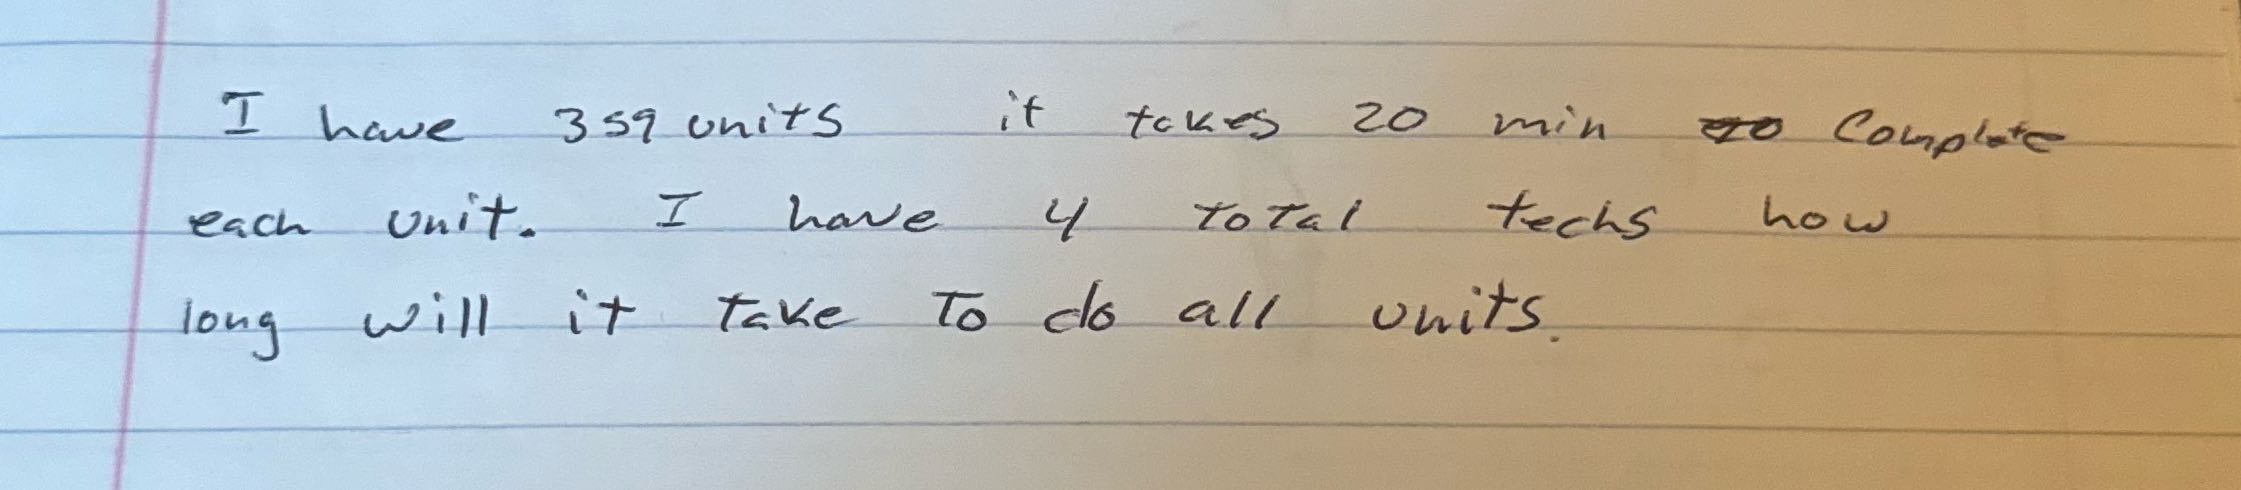 I have 359 units it takes 20 min to Complete
each unit. I have 4 total techs how
long will it take To do all units.